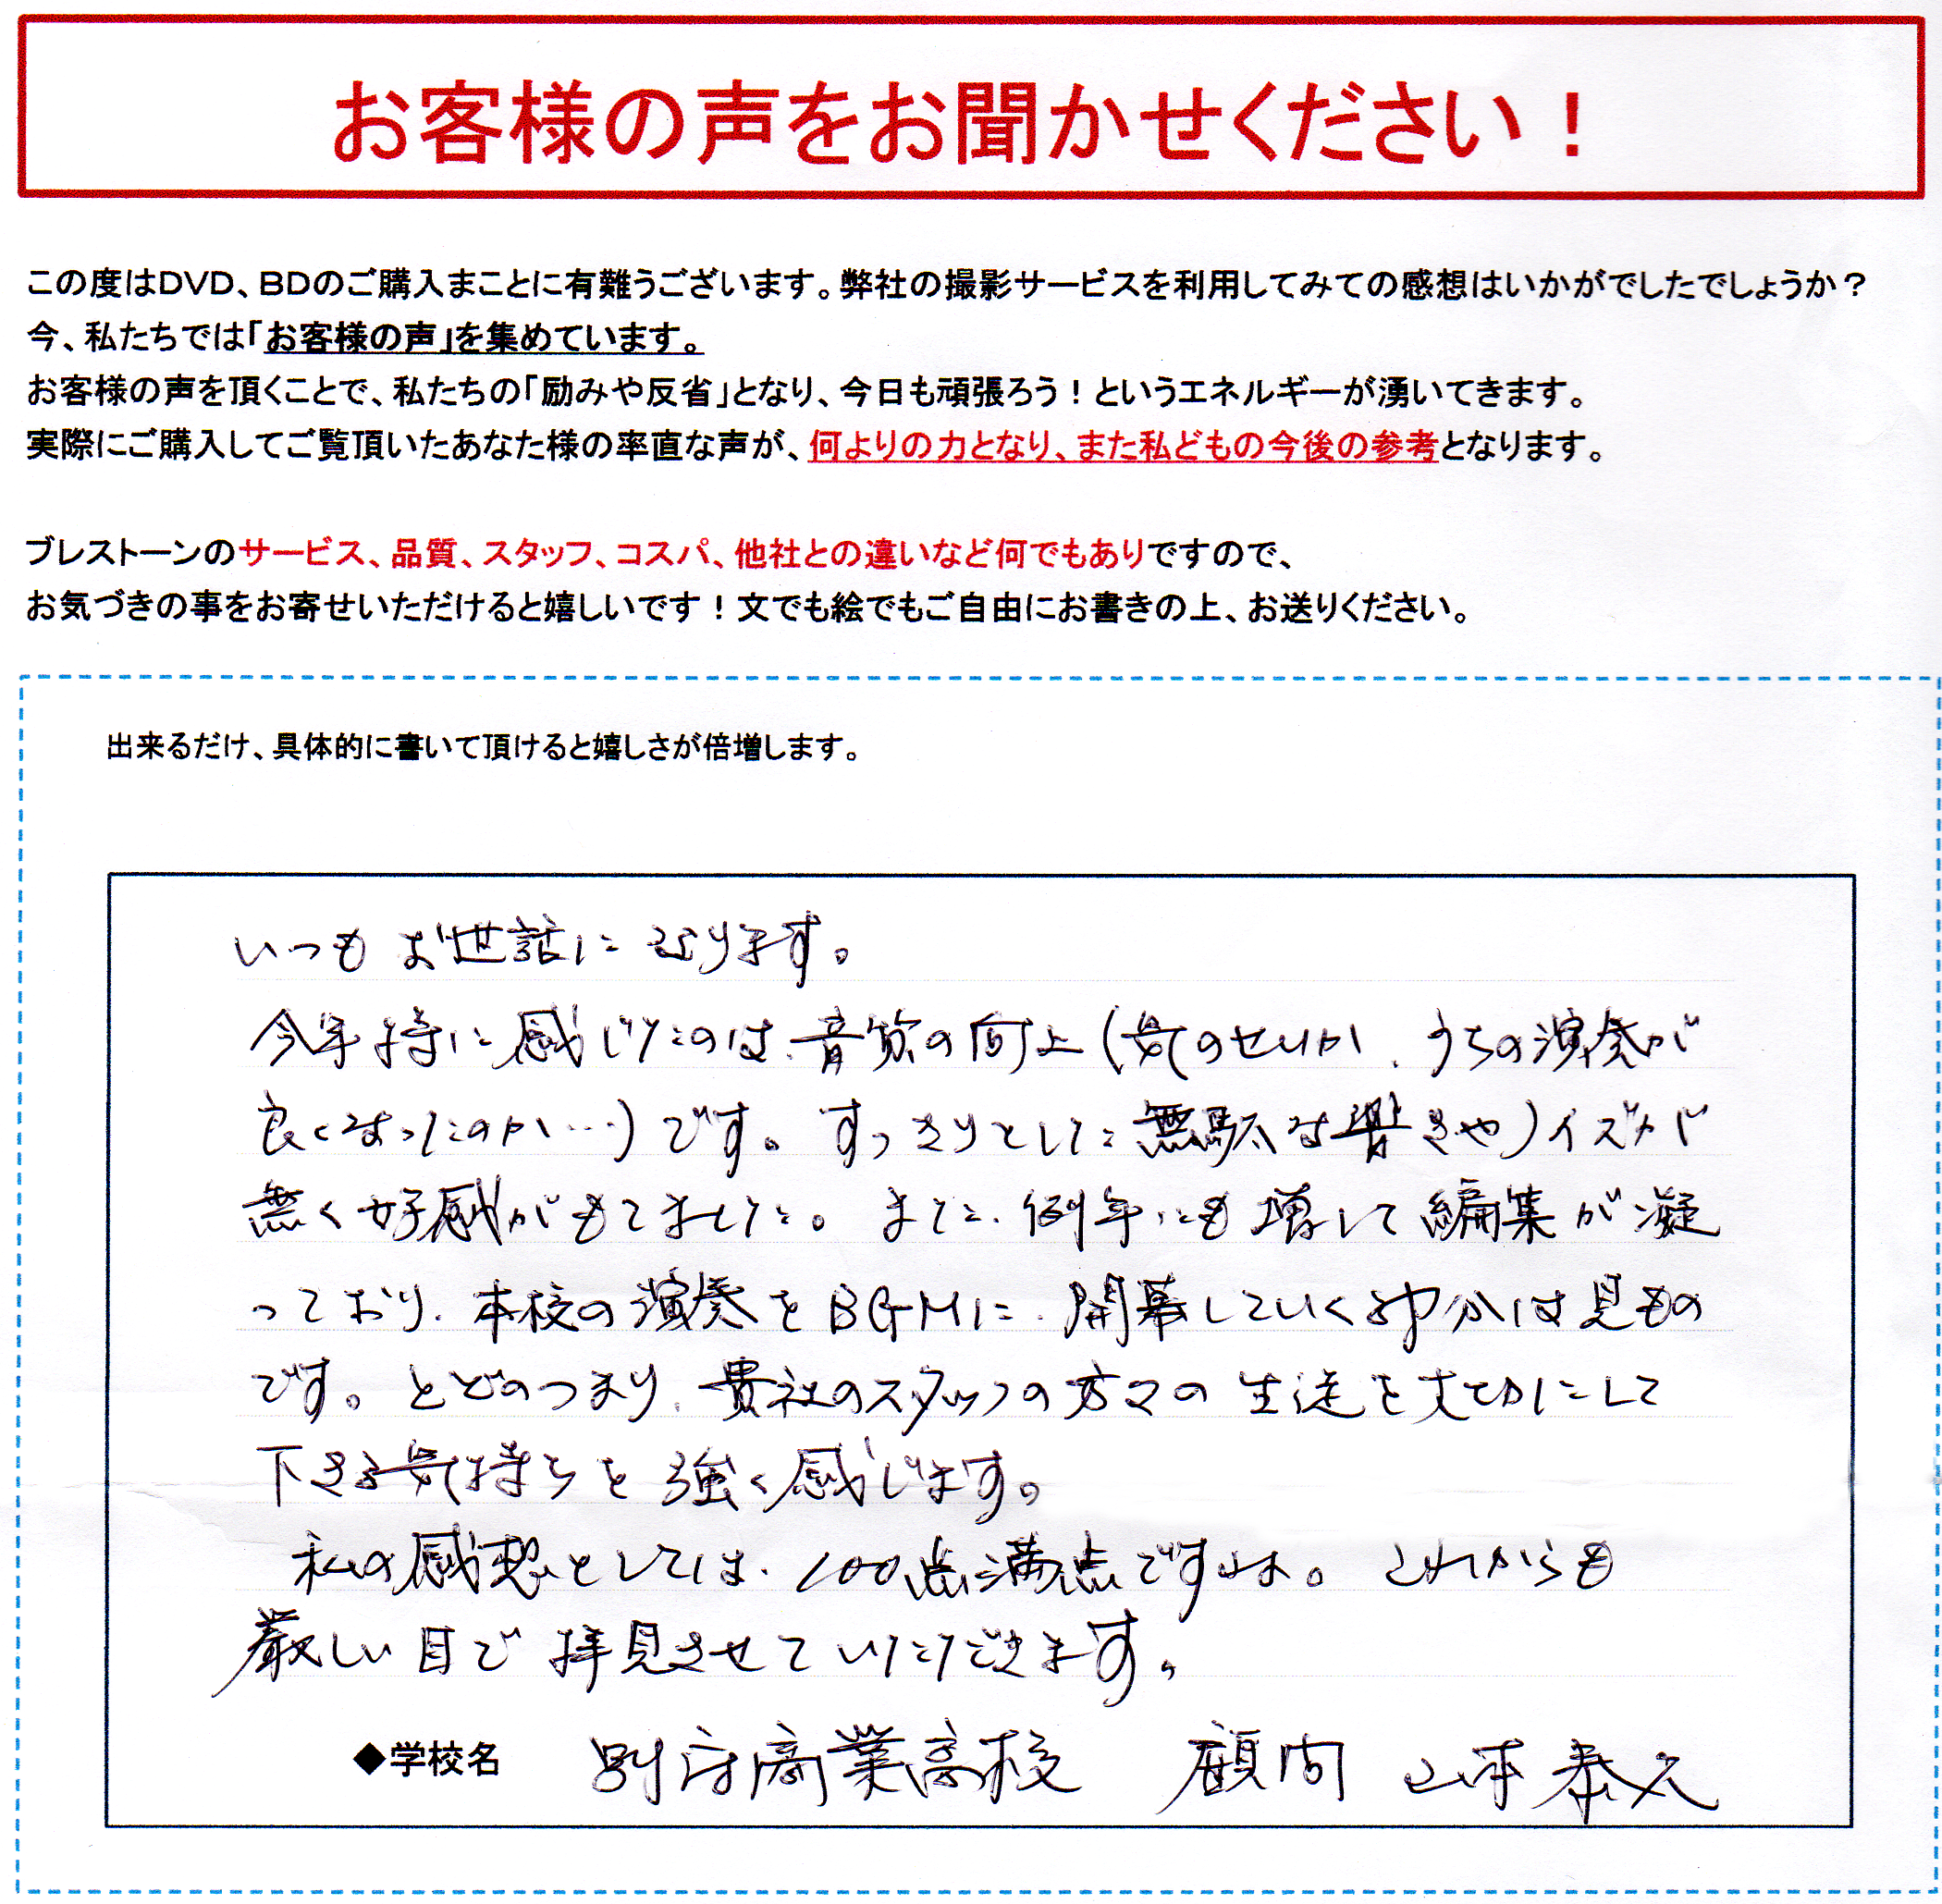 お客様の声をお聞かせください！
この度はＤＶＤ、ＢＤのご購入まことに有難うございます。弊社の撮影サービスを利用してみての感想はいかがでしたでしょうか？
今、私たちでは「お客様の声」を集めています。
お客様の声を頂くことで、私たちの「励みや反省」となり、今日も頑張ろう！というエネルギーが湧いてきます。
実際にご購入してご覧頂いたあなた様の率直な声が、何よりの力となり、また私どもの今後の参考となります。
ブレストーンのサービス、品質、スタッフ、コスパ、他社との違いなど何でもありですので、
お気づきの事をお寄せいただけると嬉しいです！文でも絵でもご自由にお書きの上、お送りください。
出来るだけ、具体的に書いて頂けると嬉しさが倍増します。
いつもお世話になります。
今年特に感じたのは、音質の向上（気のせいか、うちの演奏が
良くなったのか…）です。すっきりとした無駄な響きやノイズが
無く好感がもてました。また、例年にも増して編集が凝
っており、本校の演奏をＢＧＭに、開幕していく部分は見もの
です。とどのつまり、貴社のスタッフの方々の生徒を大切にして
下さる気持ちを強く感じます。
私の感想としては、100点満点ですよ。これからも
厳しい目で拝見させていただきます。
◆学校名 別府商業高校 顧問 山本泰久